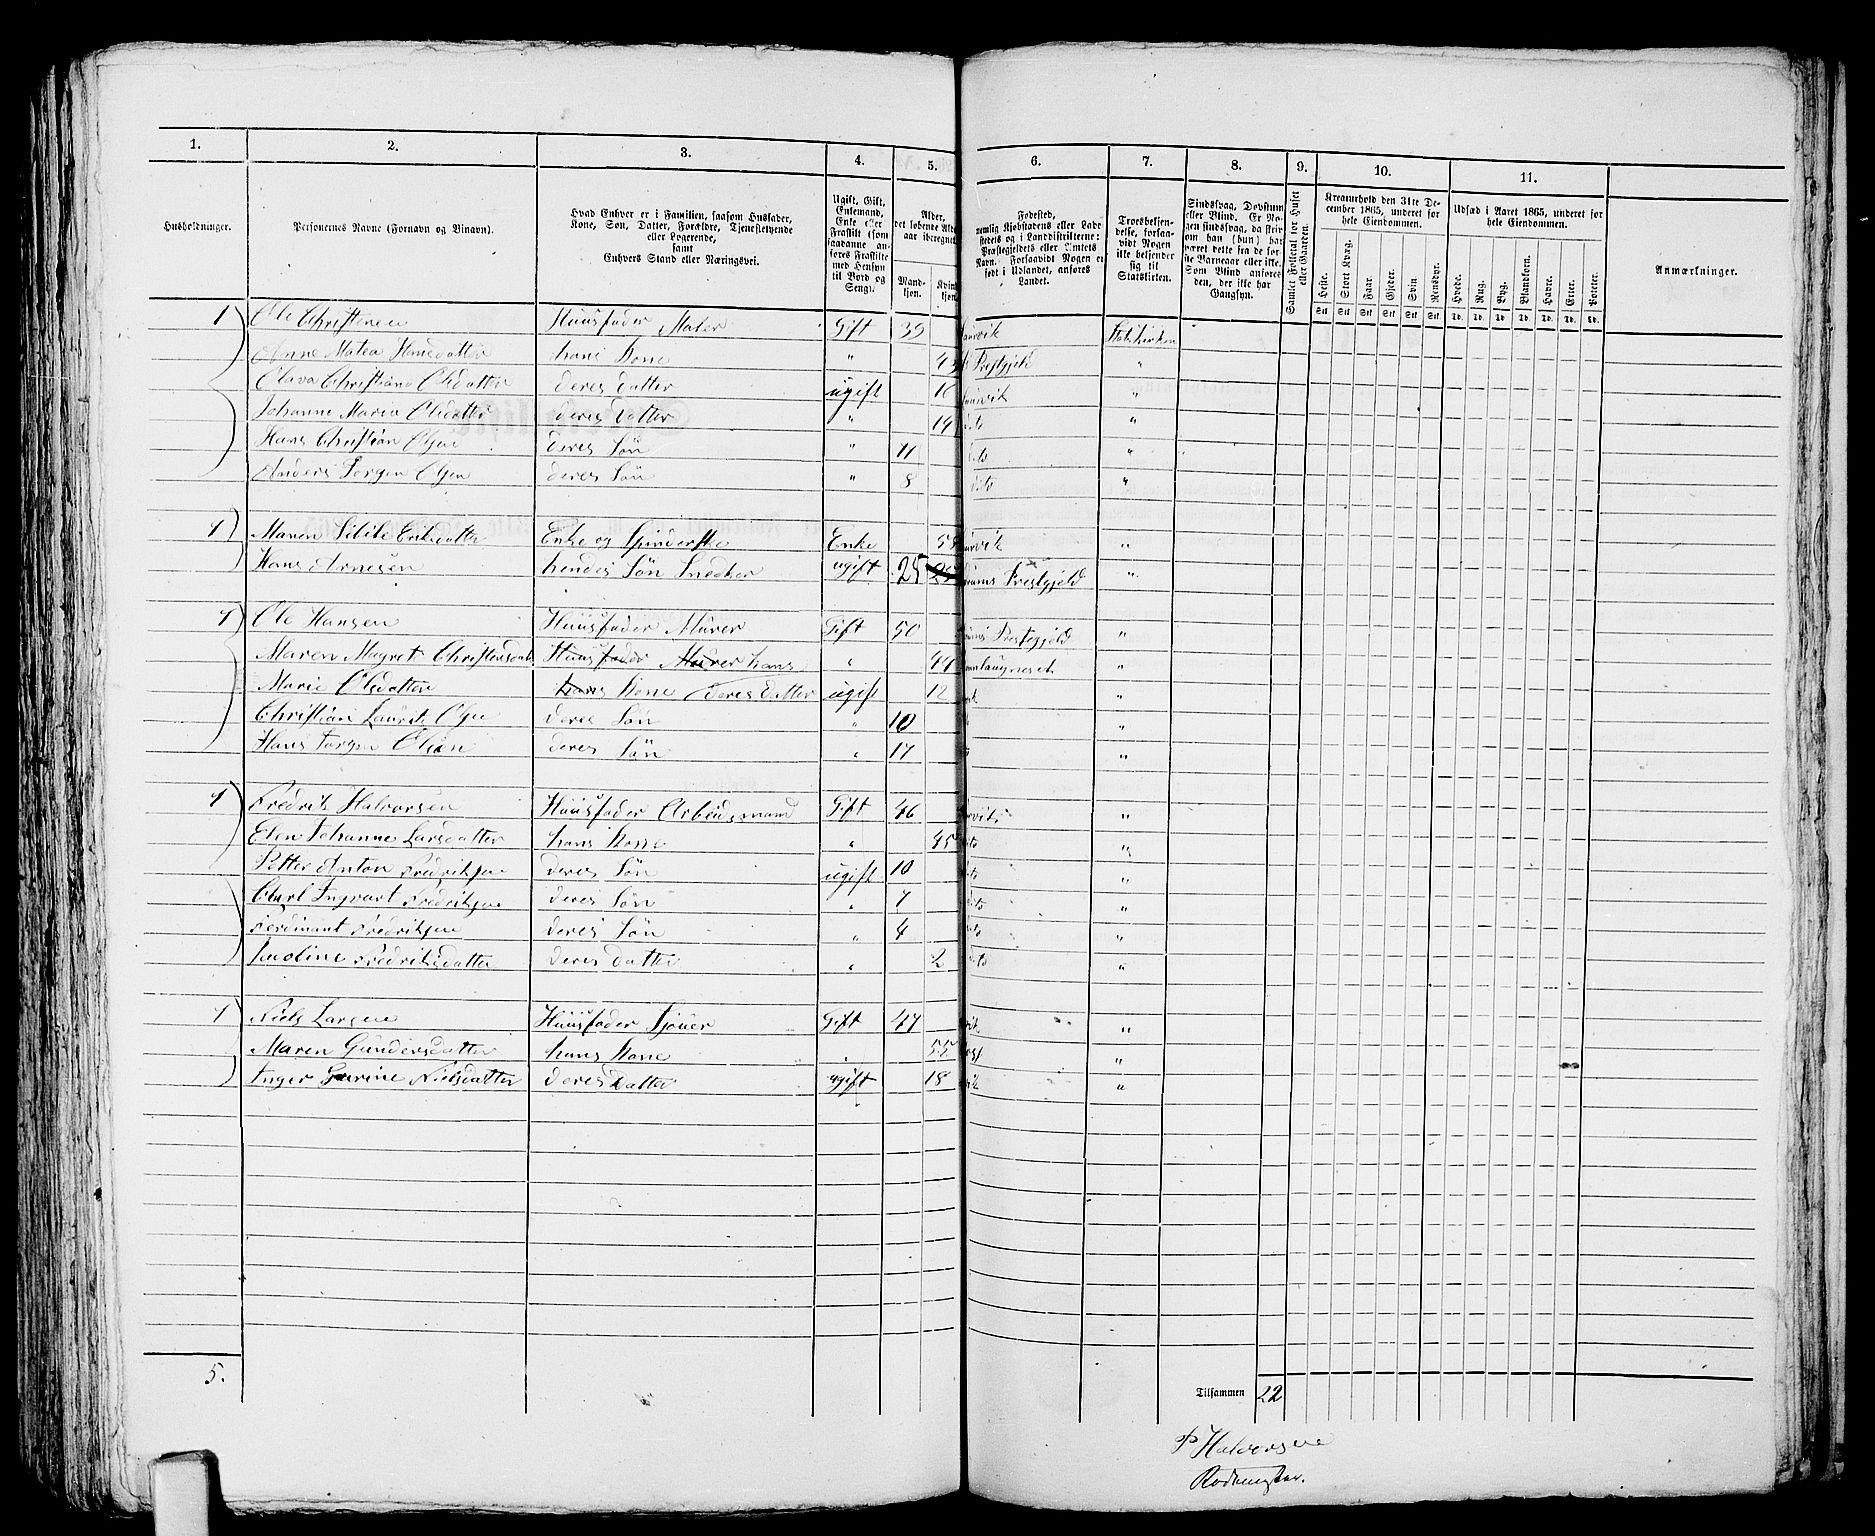 1. 2. 3. 4. 5. 6. 7. 8. 9. 10. 11.
Husholdninger.
Personernes Navne (Fornavn og Binavn).
Hvad Enhver er i Familien, saasom Husfader,
Kone, Søn, Datter, Forældre, Tjenestetyende
eller Logerende,
samt
Enhvers Stand eller Næringsvei.
Ugift, Gift,
Enkemand,
Enke eller
Fraskilt (som
saadanne an-
føres Fraskilte
med Hensyn
til Bord og
Seng).
Alder,
det løbende Alders-
aar iberegnet
Mand-
kjøn.
Kvind-
kjøn
Fødested,
nemlig Kjøbstadens eller Lade-
stedets og i Landdistrikterne:
Præstegjeldets eller Amtets
Navn. Forsaavidt Nogen er
født i Udlandet, anføres
Landet.
Troesbekjen-
delse, forsaa-
vidt Nogen
ikke bekjender
sig til
Statskirken.
Sindssvag, Døvstum
eller Blind. Er No-
gen sindssvag, da skri-
ves om han (hun) har
været dette fra de før-
ste Barneaar eller ikke.
Som Blind anføres
den, der ikke har
Gangsyn.
Samlet Folketal for Huset
eller Gaarden.
Kreaturhold den 31te De-
cember 1865, underet for
hele Eiendommen.
Heste. Stort Kvæg. Faar. Gjeter. Svin. Rensdyr.
Stk. Stk. Stk. Stk. Stk. Stk.
Udsæd i Aaret 1865, underet for
hele Eiendommen.
Hvede. Rug. Byg. Blandkorn. Havre. Erter. Poteter.
Td. Td. Td. Td. Td. Td. Td.
Anmærkninger.
1 Ole Christensen Huusfader Maler Gift 39 Statskirken
Anne Matea Hansdatter hans Kone " 43 Prestgjeld "
Olava Christiane Olsdatter deres datter ugift 16 "
Johanne Maria Olsdatter deres datter " 14 "
Hans Christian Olsen deres Søn " 11 "
Anders Jørgen Olsen deres Søn " 8 "
1 Maren Sibile Eriksdatter Enke og Spinderske Enke 58 "
Hans Arnesen hendes Søn Snedker ugift 25 25 Prestgjeld "
1 Ole Hansen Huusfader Murer Gift 50 Prestegjeld "
Maren Magret Christensdatt Huusfader Murer hans " 44 "
Marie Olsdatter hans Kone deres Datter ugift 12 "
Christian Laurits Olsen deres Søn " 10 "
Hans Jørgen Olsen deres Søn " 17 "
1 Fredrik Halvorsen Huusfader Arbeidsmand Gift 46 "
Elen Johanne Larsdatter hans Kone " 45 "
Petter Anton Fredriksen deres Søn ugift 10 "
Carl Ingvart Fredriksen deres Søn " 7 "
Ferdinant Fredriksen deres Søn " 4 "
Fredriksdatter deres datter " 2 "
1 Niels Larsen Huusfader Sjouer Gift 47 "
Maren Gundersdatter hans Kone " 55 "
Inger Nielsdatter deres Datter ugift 18 "
5.
Tilsammen 22
P Halvorsen
Rodemester.